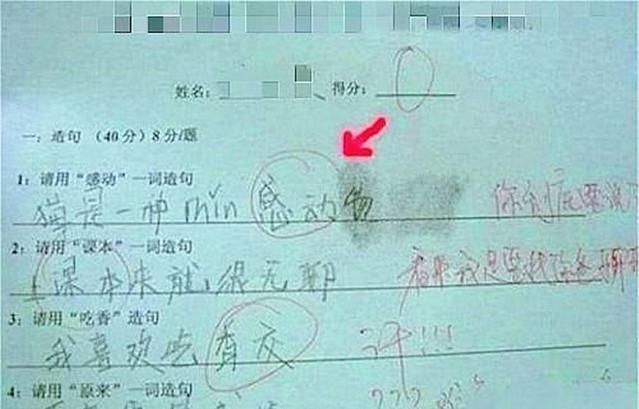 姓名: 得分: 0
一: 造句 (40分) 8分/题
1: 请用“感动”一词造句
猫是一种min感动物
你到底要说
2: 请用“课本”一词造句
上课本来就很无聊
看来我是要找你爸聊聊
3: 请用“吃香”造句
我喜欢吃香交
汗!!!
4: 请用“原来”一词造句
???